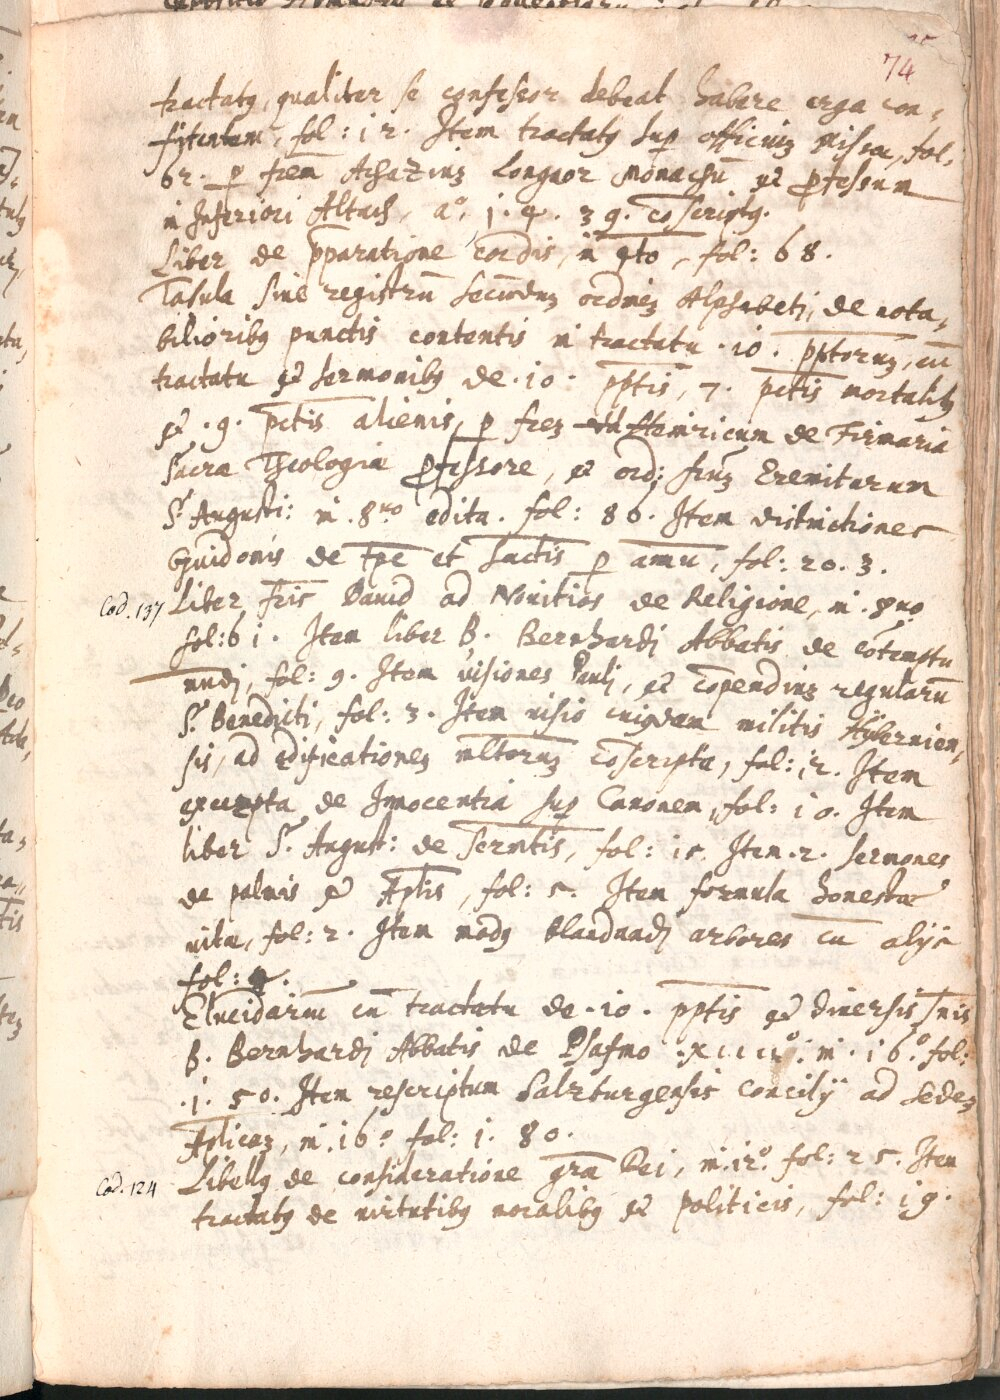 74
tractatq, qualiter se confessor debeat habere erga con,
fitentem, fol: 12. Item tractatq sup officiuz missae, fol,
62. p frem Achaziuz monachū et pfessum
in Inferiori Altach, a°. 1. 4. 39. coscriptq.
Liber de pparatione cordis, in 4to, fol: 68.
Tabula sive registrū secunduz ordinez Alphabetj, de nota,
bilioribq punctis contentis in tractatu .10. pptoruz, cū
tractatu et sermonibq de .10. pptis, 7. pctis mortalibq
et .9. pctis alienis, p frez Heinricum de Firmaria
Sacrae Theologiae pfessore, et ord: frm Eremitarum
S. Augusti: in .8uo edita. fol: 86. Item distinctiones
Guidonis de tpe et sactis p annū, fol: 20. 3.
Cod. 137 Liber fris Dauid ad Nouitios de Religione, in .8uo.
fol: 61. Item liber B. Bernhardj Abbatis de cotemptu
mudj, fol: 9. Item uisiones Paulj, et copendiuz regularū
S. Benedicti, fol: 3. Item uisio cuiqdam militis Hyberniem,
sis, ad edificationez mltoruz coscripta, fol: 12. Item
excerpta de Innocentia sup Canonem, fol: 10. Item
liber S. August: de Sermtis, fol: 15. Item .2. sermones
de palmis et Aplis, fol: 5. Item formula honestae
uitae, fol: 2. Item modq arbores cū alijs
fol:
Elucidariū cū tractatu de .10. pptis et diuersis
B. Bernhardj Abbatis de Psalmo in .16°. fol:
.1. 50. Item rescriptum Salzburgensis Concilij ad sedez
Aplicaz, in .16° fol: 1. 80.
Cod. 124 Libellq de consideratione grae Dei, in .12°. fol: 25. Item
tractatq de uirtutibq moralibq et politicis, fol: 19.